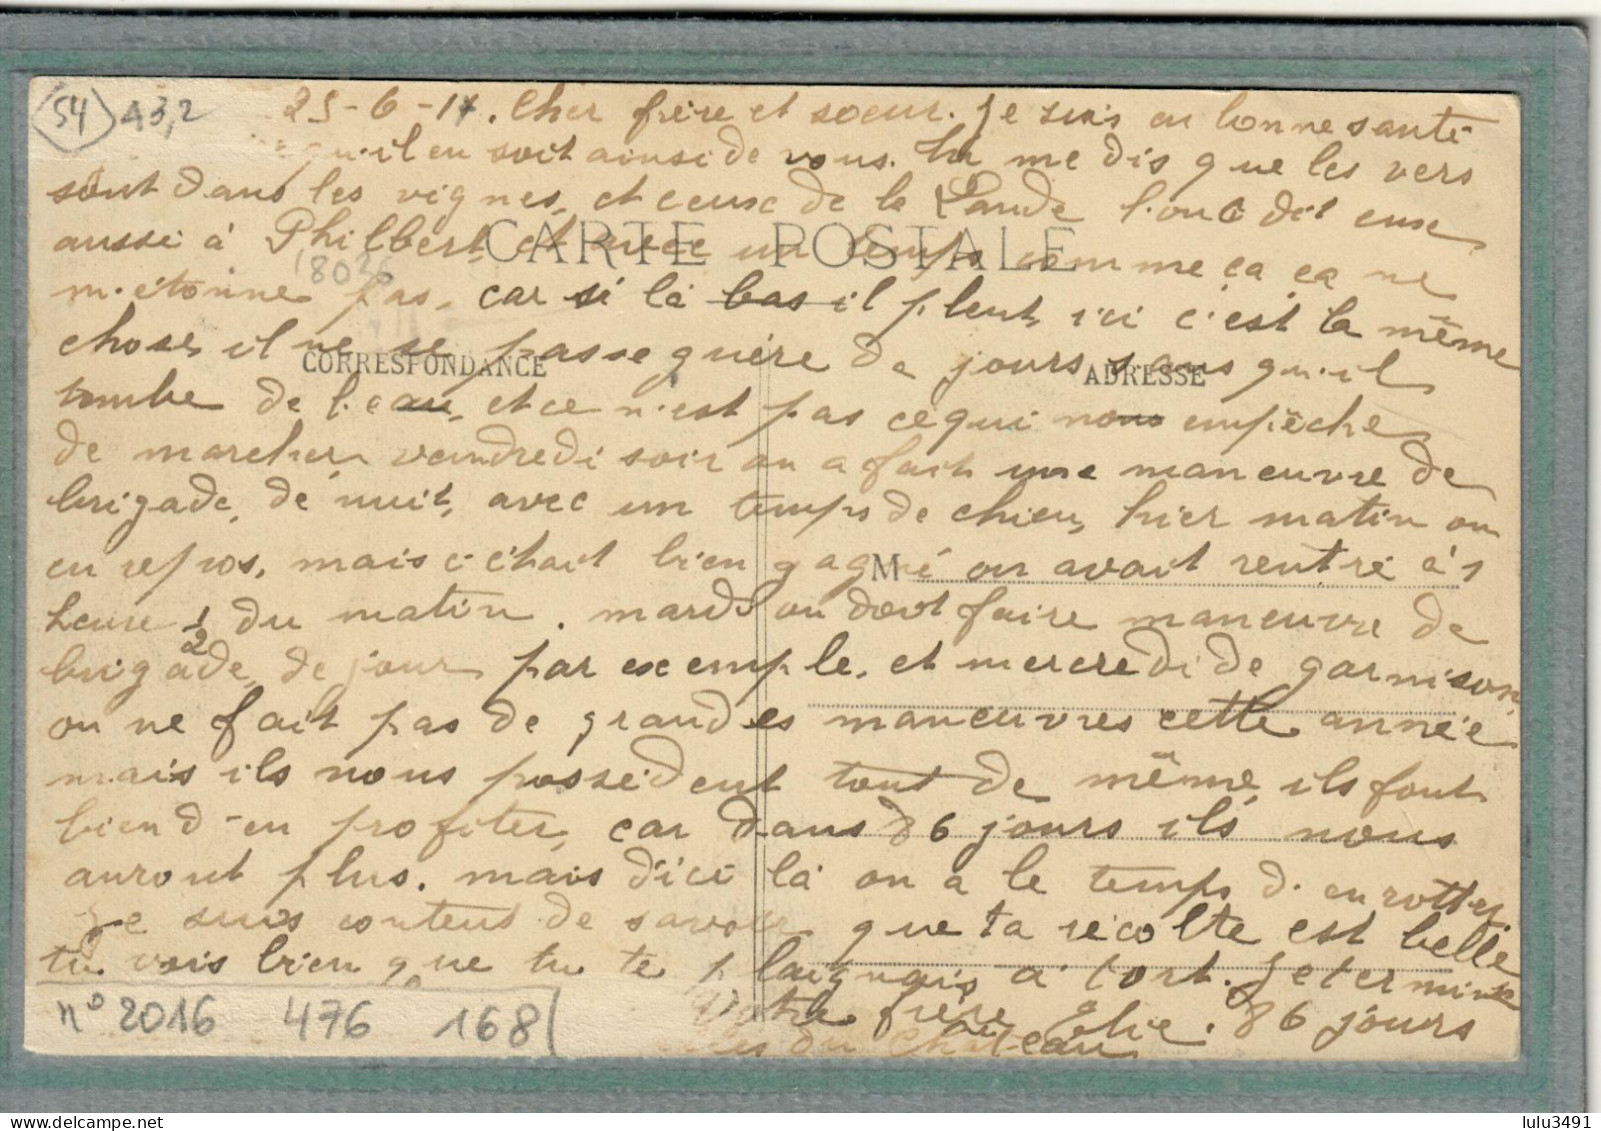 54 A3,2
25-6-11. Cher frère et soeur. Je suis en bonne santé
qu'il en soit ainsi de vous. Tu me dis que les vers
sont dans les vignes, et ceusc de la Lande l'ont dit eusc
aussi à Philbert, et avec un temps comme ça ça ne
CARTE POSTALE
m'étonne pas, car si là bas il pleut, ici c'est la même
chose, il ne se passe guère de jours sans qu'il
CORRESPONDANCE
ADRESSE
tombe de l'eau, et ce n'est pas ce qui nous empêche
de marcher, vendredi soir on a fait une maneuvre de
brigade, de nuit, avec un temps de chien, hier matin on
en repos, mais c'était bien gagné on avait rentré à 1
M
heure 1/2 du matin. mardi on doit faire maneuvre de
brigade, de jour par escemple, et mercredi de garnison,
on ne fait pas de grandes maneuvres cette année
mais ils nous possèdent tout de même, ils font
bien d'en profiter, car dans 86 jours ils nous
auront plus. mais d'ici là on a le temps d'en rotter
Je suis content de savoir que ta récolte est belle
tu vois bien que tu te plaignais à tort. Je termine
Votre frère Elie. 86 jours
du Château
n° 2016 476 168
lulu3491